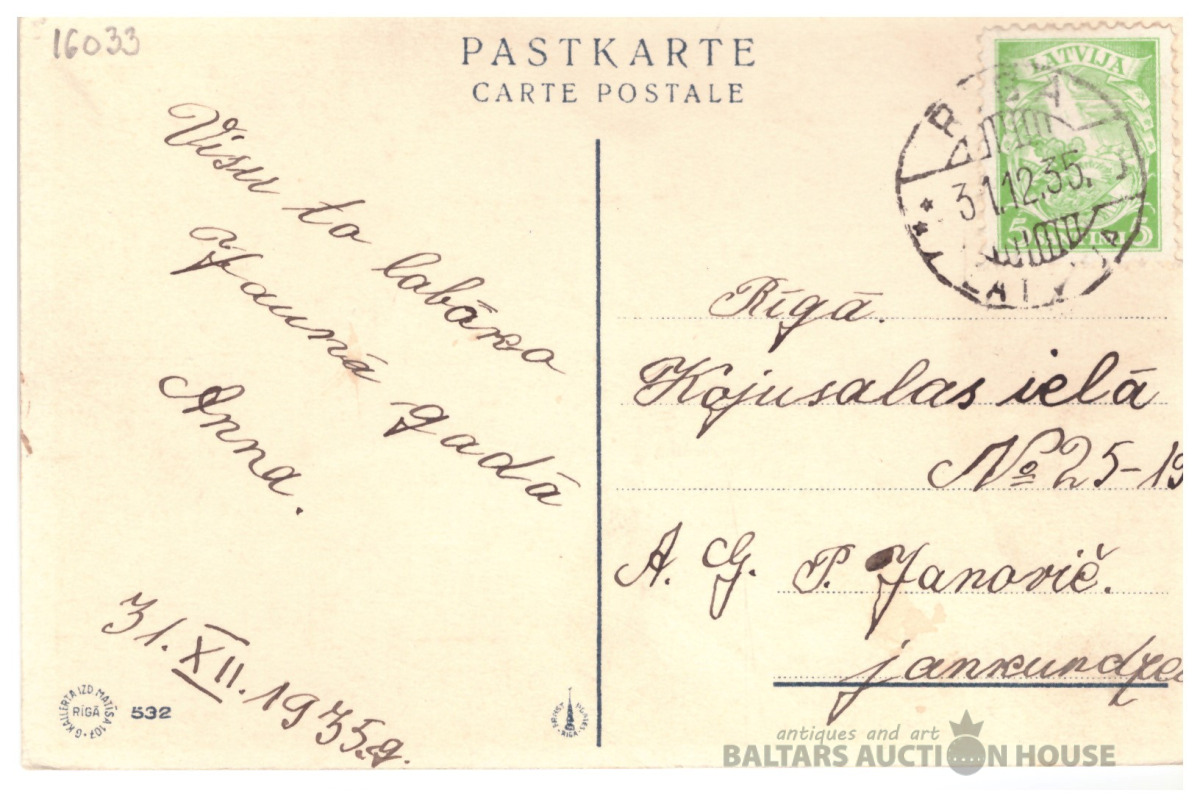 16033
PASTKARTE
CARTE POSTALE
LATVIJA
RIGA
31.12.35.
LATVIJA
Visu to labāko
Jaunā gadā
Anna.
31. XII. 1935.g.
Rīgā.
Kojusalas ielā
№ 25-19
A. G. P. Janovič.
jaunkundzei
G. KALLERTA IZD. MATĪSA 107
RĪGĀ
532
antiques and art
BALTARS AUCTION HOUSE